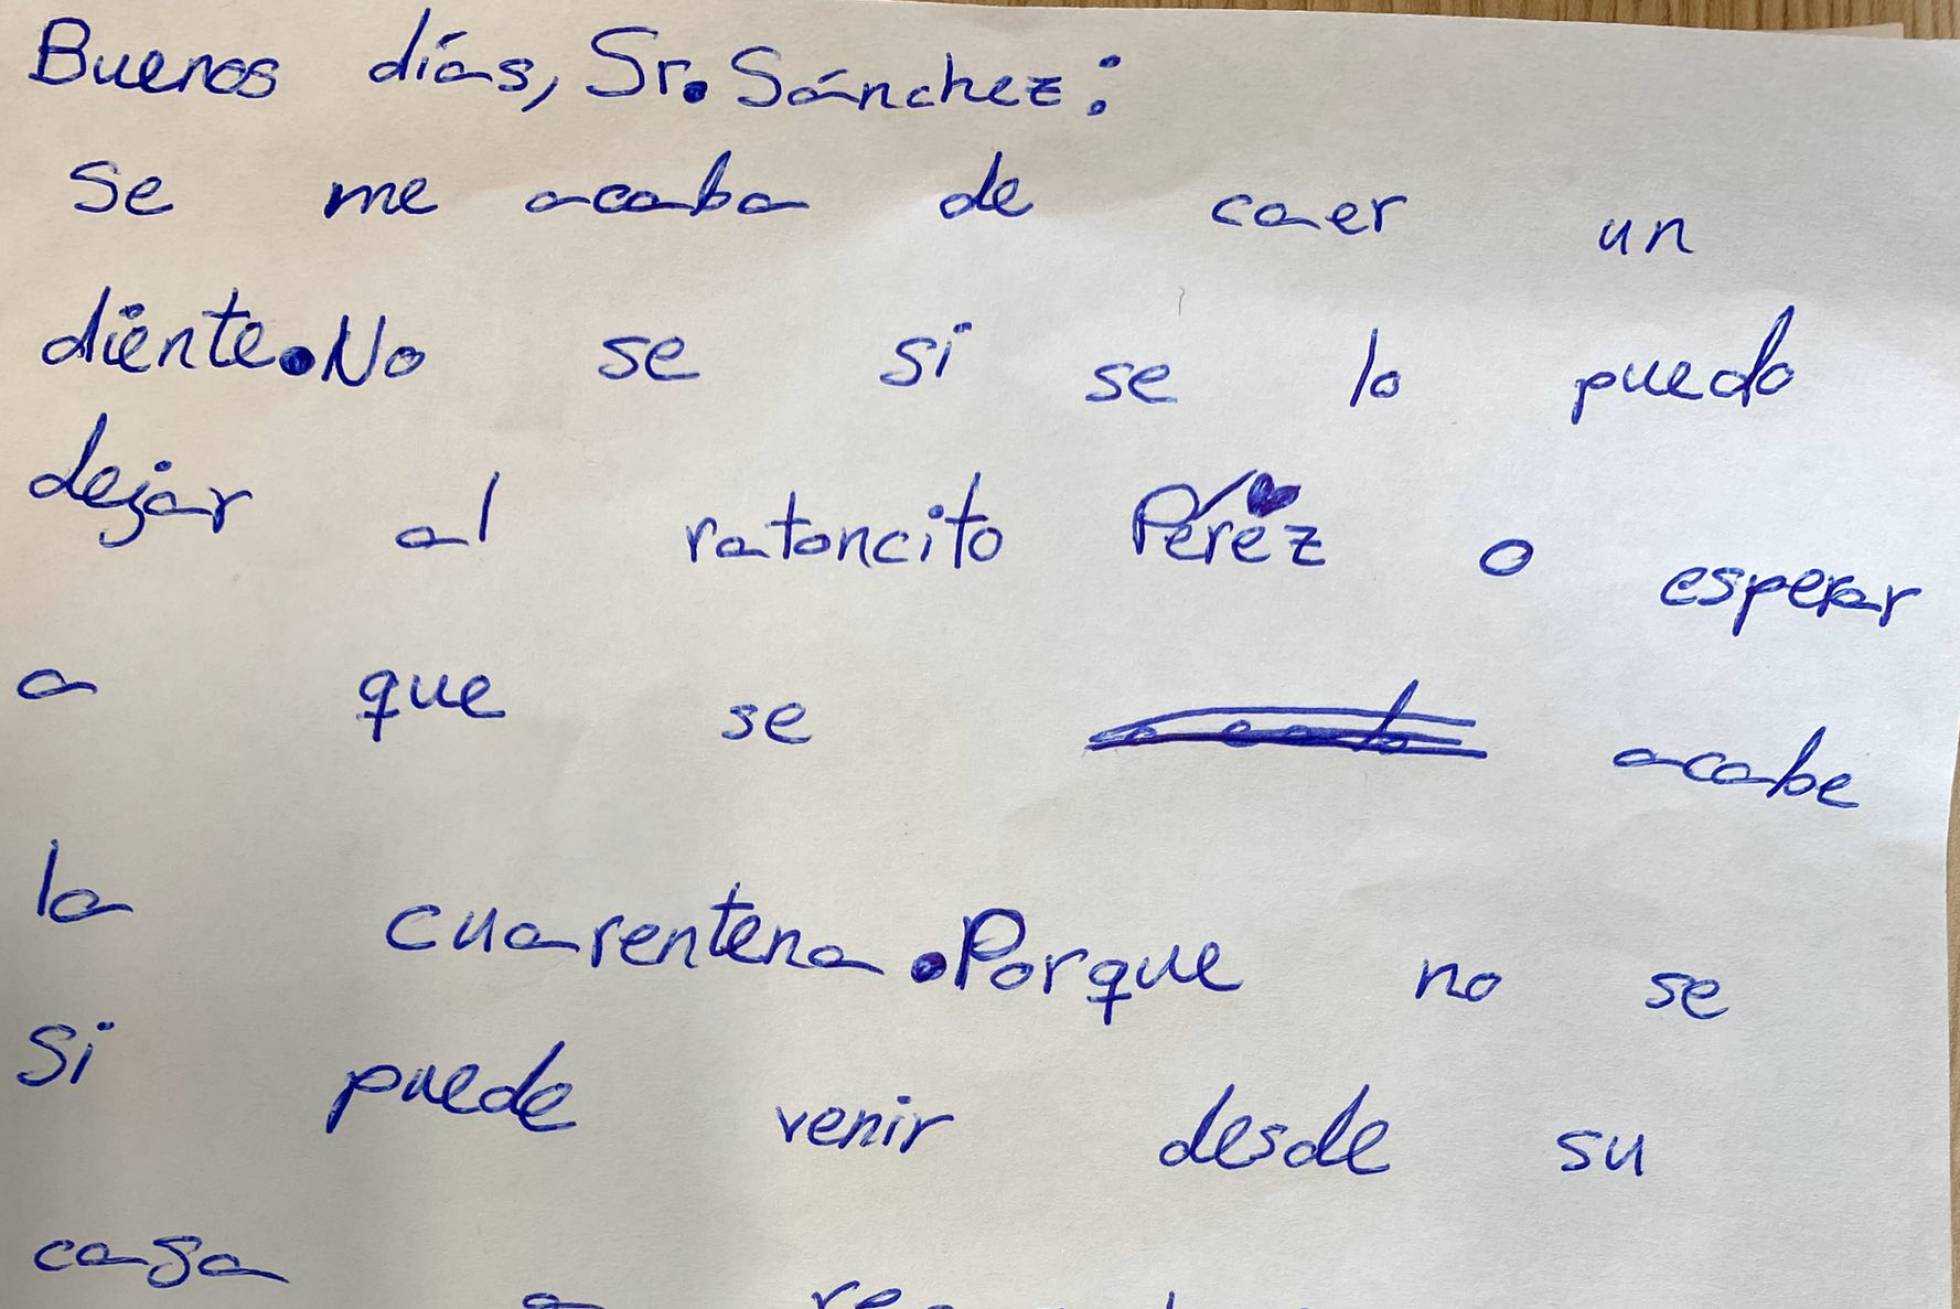 Buenos días, Sr. Sánchez:
Se me acaba de caer un
diente. No se si se lo puedo
dejar al ratoncito Pérez o esperar
a que se acabe
la cuarentena. Porque no se
si puede venir desde su
casa a